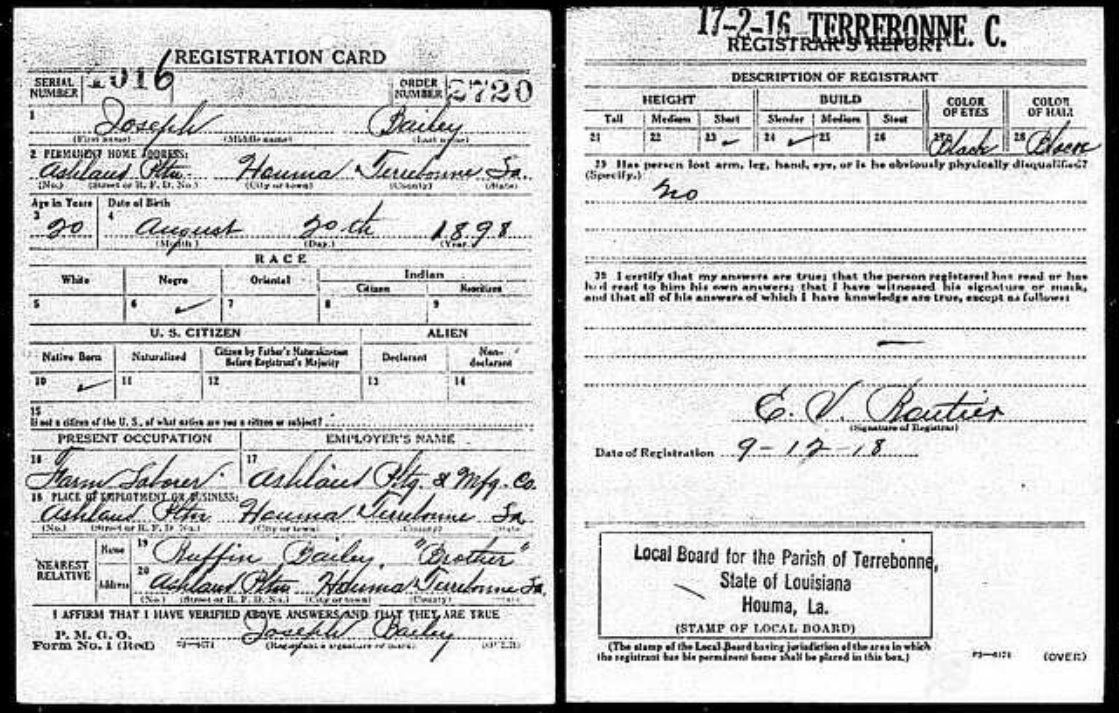 REGISTRATION CARD
SERIAL NUMBER 1016 ORDER NUMBER 2720
1 Joseph Bailey
(First name) (Middle name) (Last name)
2 PERMANENT HOME ADDRESS:
Ashland Pltn. Houma Terrebonne La.
(No.) (Street or R. F. D. No.) (City or town) (County) (State)
Age in Years Date of Birth
3 20 4 August 20th 1898
(Month) (Day.) (Year.)
RACE
White Negro Oriental Indian
Citizen Noncitizen
5 6 ✓ 7 8 9
U. S. CITIZEN ALIEN
Native Born Naturalized Citizen by Father's Naturalization Before Registrant's Majority Declarant Non-declarant
10 ✓ 11 12 13 14
15
If not a citizen of the U. S., of what nation are you a citizen or subject?
PRESENT OCCUPATION EMPLOYER'S NAME
16 Farm Laborer 17 Ashland Pltg. & Mfg. Co.
18 PLACE OF EMPLOYMENT OR BUSINESS:
Ashland Pltn Houma Terrebonne La
(No.) (Street or R. F. D. No.) (City or town) (County) (State)
NEAREST RELATIVE
Name 19 Ruffin Bailey "Brother"
Address 20 Ashland Pltn Houma Terrebonne La.
(No.) (Street or R. F. D. No.) (City or town) (County) (State)
I AFFIRM THAT I HAVE VERIFIED ABOVE ANSWERS AND THAT THEY ARE TRUE
P. M. G. O.
Form No. 1 (Red) Joseph Bailey
(Registrant's signature or mark) (OVER)
17-2-16 TERREBONNE. C.
REGISTRAR'S REPORT
DESCRIPTION OF REGISTRANT
HEIGHT BUILD COLOR OF EYES COLOR OF HAIR
Tall Medium Short Slender Medium Stout
21 22 23 ✓ 24 ✓ 25 26 27 Black 28 Black
29 Has person lost arm, leg, hand, eye, or is he obviously physically disqualified?
(Specify.) No
30 I certify that my answers are true; that the person registered has read or has
had read to him his own answers; that I have witnessed his signature or mark,
and that all of his answers of which I have knowledge are true, except as follows:
E. V.
(Signature of Registrar)
Date of Registration 9-12-18
Local Board for the Parish of Terrebonne,
State of Louisiana
Houma, La.
(STAMP OF LOCAL BOARD)
(The stamp of the Local Board having jurisdiction of the area in which
the registrant has his permanent home shall be placed in this box.)
(OVER)